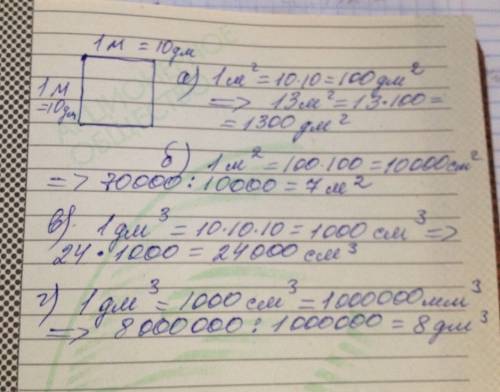 1 м = 10 дм
1 м
= 10 дм
а) 1 м² = 10·10 = 100 дм²
=> 13 м² = 13·100 =
= 1300 дм²
б) 1 м² = 100·100 = 10000 см²
=> 70000 : 10000 = 7 м²
в) 1 дм³ = 10·10·10 = 1000 см³ =>
24 · 1000 = 24000 см³
г) 1 дм³ = 1000 см³ = 1000000 мм³
=> 8000000 : 1000000 = 8 дм³